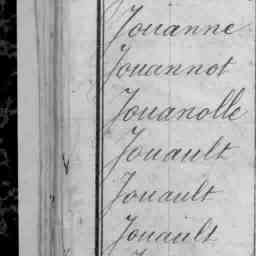 Jouanne
Jouannot
Jouanolle
Jouault
Jouault
Jouault